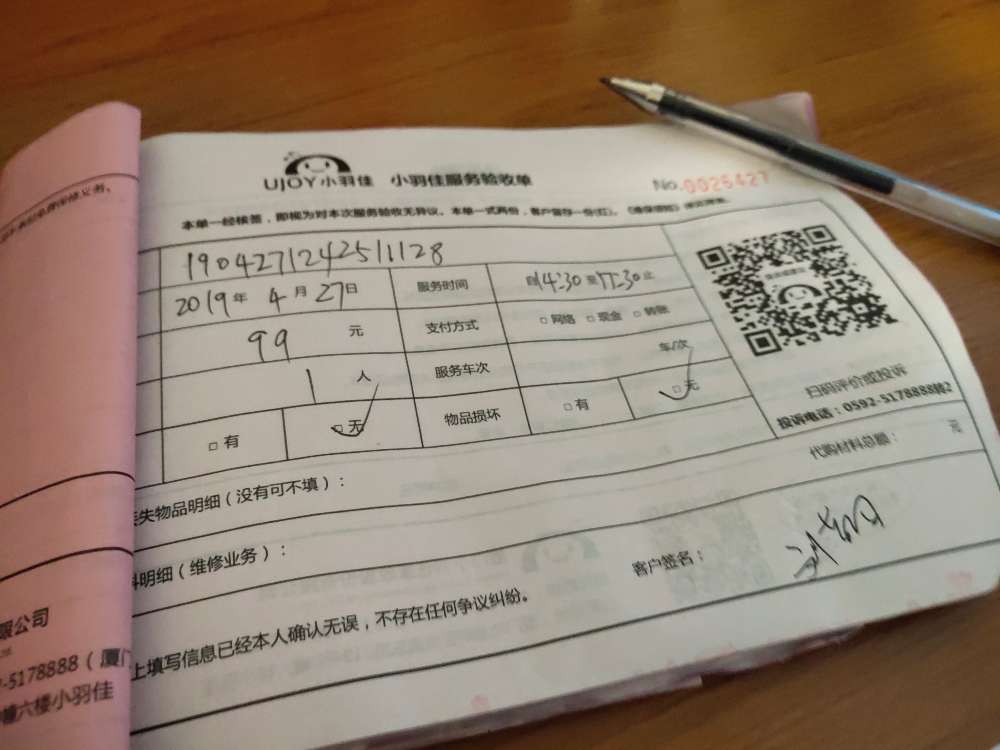 UJOY小羽佳 小羽佳服务验收单
No.0026427
本单一经核签，即视为对本次服务验收无异议。本单一式两份，客户留存一份(红)。
1904271242511128
2019年 4月 27日 服务时间 自14:30至17:30止
99 元 支付方式 □网络 □现金 □转账
1 人 服务车次 车/次
□有 □无 物品损坏 □有 □无
扫码评价或投诉
投诉电话：0592-5178888转2
失物品明细（没有可不填）：
代购材料总额： 元
料明细（维修业务）：
客户签名：
上填写信息已经本人确认无误，不存在任何争议纠纷。
限公司
-5178888（厦门
幢六楼小羽佳